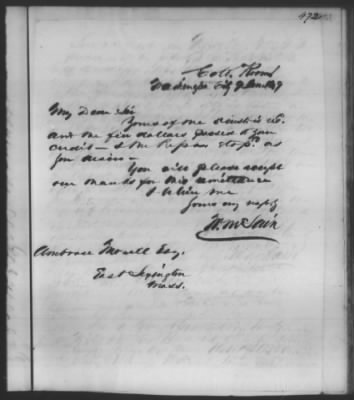 472
Col. Rooms
Washington City 9 Jan 1849
My Dear Sir
Yours of the is recd.
and the five dollars passed to your
credit — & the paper stopd. as
you desire —
You will please accept
our thanks for this remittance
& believe me
Yours very resply
Wm McLain
Ambrose Morell Esq.
East Lexington
Mass.